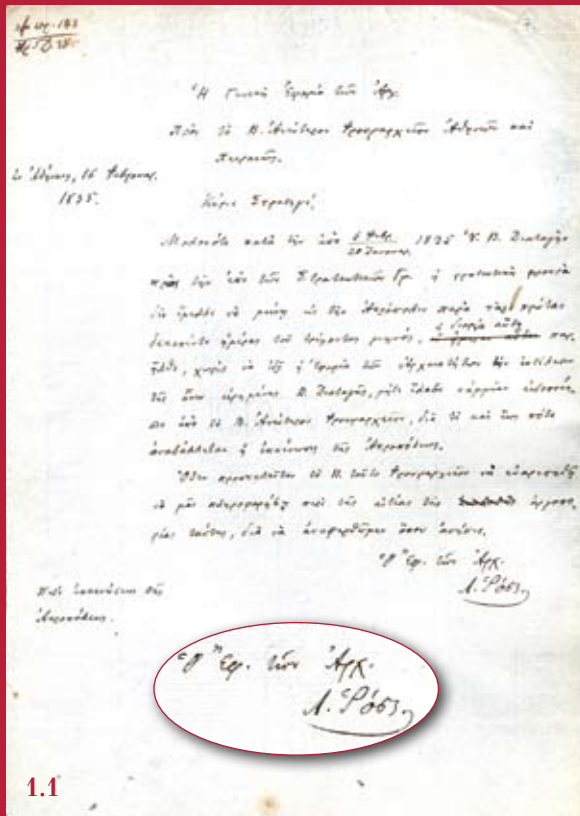 Ἡ Γενικὴ Ἐφορία τῶν Ἀρχ.
Πρὸς τὸ Β. Ἀνώτερον Φρουραρχεῖον Ἀθηνῶν καὶ
Πειραιῶς.
Ἐν Ἀθήναις, 16 Φεβρουαρ.
1835.
Κύριε Στρατηγέ,
Μολονότι κατὰ τὴν ἀπὸ 6 Φεβρ. / 25 Ἰανουαρ. 1835 Β. Διαταγὴν
πρὸς τὴν ἐπὶ τῶν Στρατιωτικῶν Γρ. ἡ στρατιωτικὴ φρουρὰ
δὲν ἔμελλε νὰ μείνῃ εἰς τὴν Ἀκρόπολιν παρὰ τὰς πρώτας
δεκαπέντε ἡμέρας τοῦ τρέχοντος μηνός, ἡ διορία αὕτη παρ
ῆλθε, χωρὶς νὰ ἡ Ἐφορία τῶν Ἀρχαιοτήτων τὴν ἐκτέλεσιν
τῆς ἄνω εἰρημένης Β. Διαταγῆς, μήτε ἔλαβε κἀμμίαν εἰδοποίη
σιν ἀπὸ τὸ Β. Ἀνώτερον Φρουραρχεῖον, διὰ τί καὶ ἕως πότε
ἀναβάλλεται ἡ ἐκκένωσις τῆς Ἀκροπόλεως.
Ὅθεν προσκαλεῖται τὸ Β. τοῦτο Φρουραρχεῖον νὰ εὐαρεστηθῇ
νὰ μᾶς πληροφορήσῃ περὶ τῆς αἰτίας τῆς ἀργοπο
ρίας ταύτης, διὰ νὰ ἀναφερθῶμεν ὅπου ἀνήκει.
Ὁ Ἔφ. τῶν Ἀρχ.
Λ. Ῥόσς
Περὶ ἐκκενώσεως τῆς
Ἀκροπόλεως.
Ὁ Ἔφ. τῶν Ἀρχ.
Λ. Ῥόσς
1.1